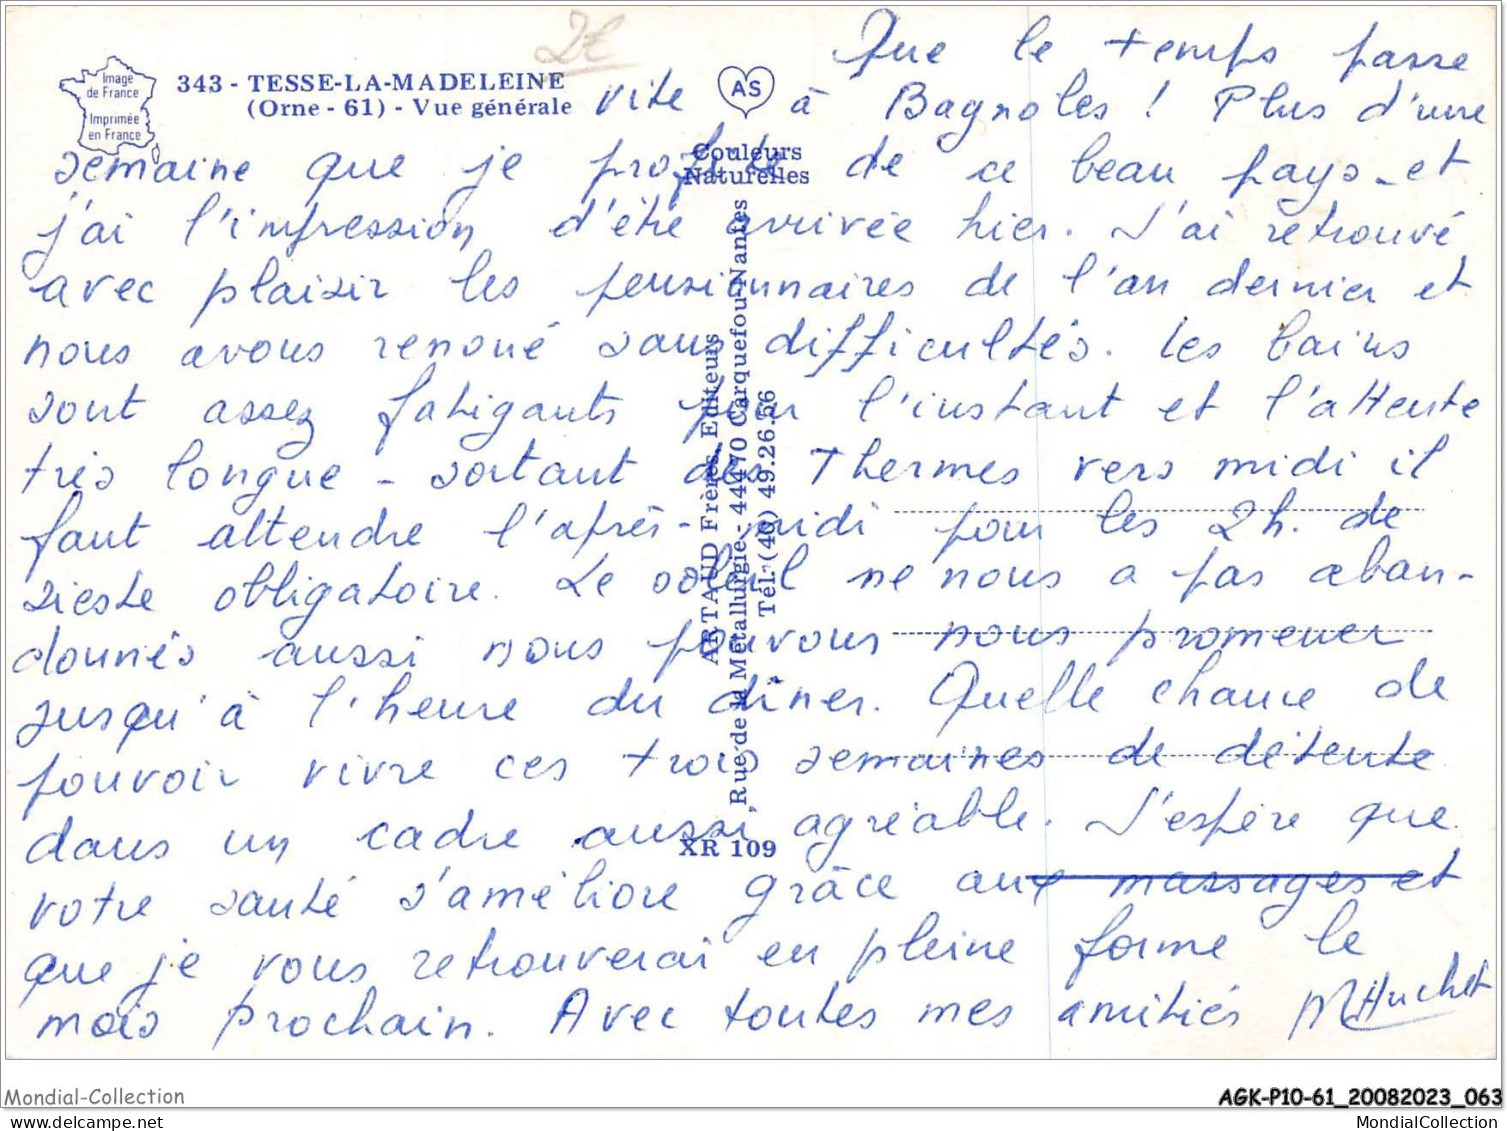 2€
Que le temps passe
343 - TESSE-LA-MADELEINE
(Orne - 61) - Vue générale
Image
de France
Imprimée
en France
AS
vite à Bagnoles ! Plus d'une
Couleurs
Naturelles
semaine que je profite de ce beau pays - et
j'ai l'impression d'être arrivée hier. J'ai retrouvé
avec plaisir les pensionnaires de l'an dernier et
nous avons renoué sans difficultés. Les bains
sont assez fatigants pour l'instant et l'attente
très longue - sortant des Thermes vers midi il
faut attendre l'après-midi pour les 2h. de
sieste obligatoire. Le soleil ne nous a pas aban-
donnés aussi nous pouvons nous promener
jusqu'à l'heure du dîner. Quelle chance de
pouvoir vivre ces trois semaines de détente
dans un cadre aussi agréable. J'espère que
votre santé s'améliore grâce aux massages et
que je vous retrouverai en pleine forme le
mois prochain. Avec toutes mes amitiés MHuchet
ARTAUD Frères, Editeurs
Rue de la Métallurgie - 44470 Carquefou-Nantes
Tél. (40) 49.26.56
XR 109
Mondial-Collection
mondialcollection.net
AGK-P10-61_20082023_063
MondialCollection.com